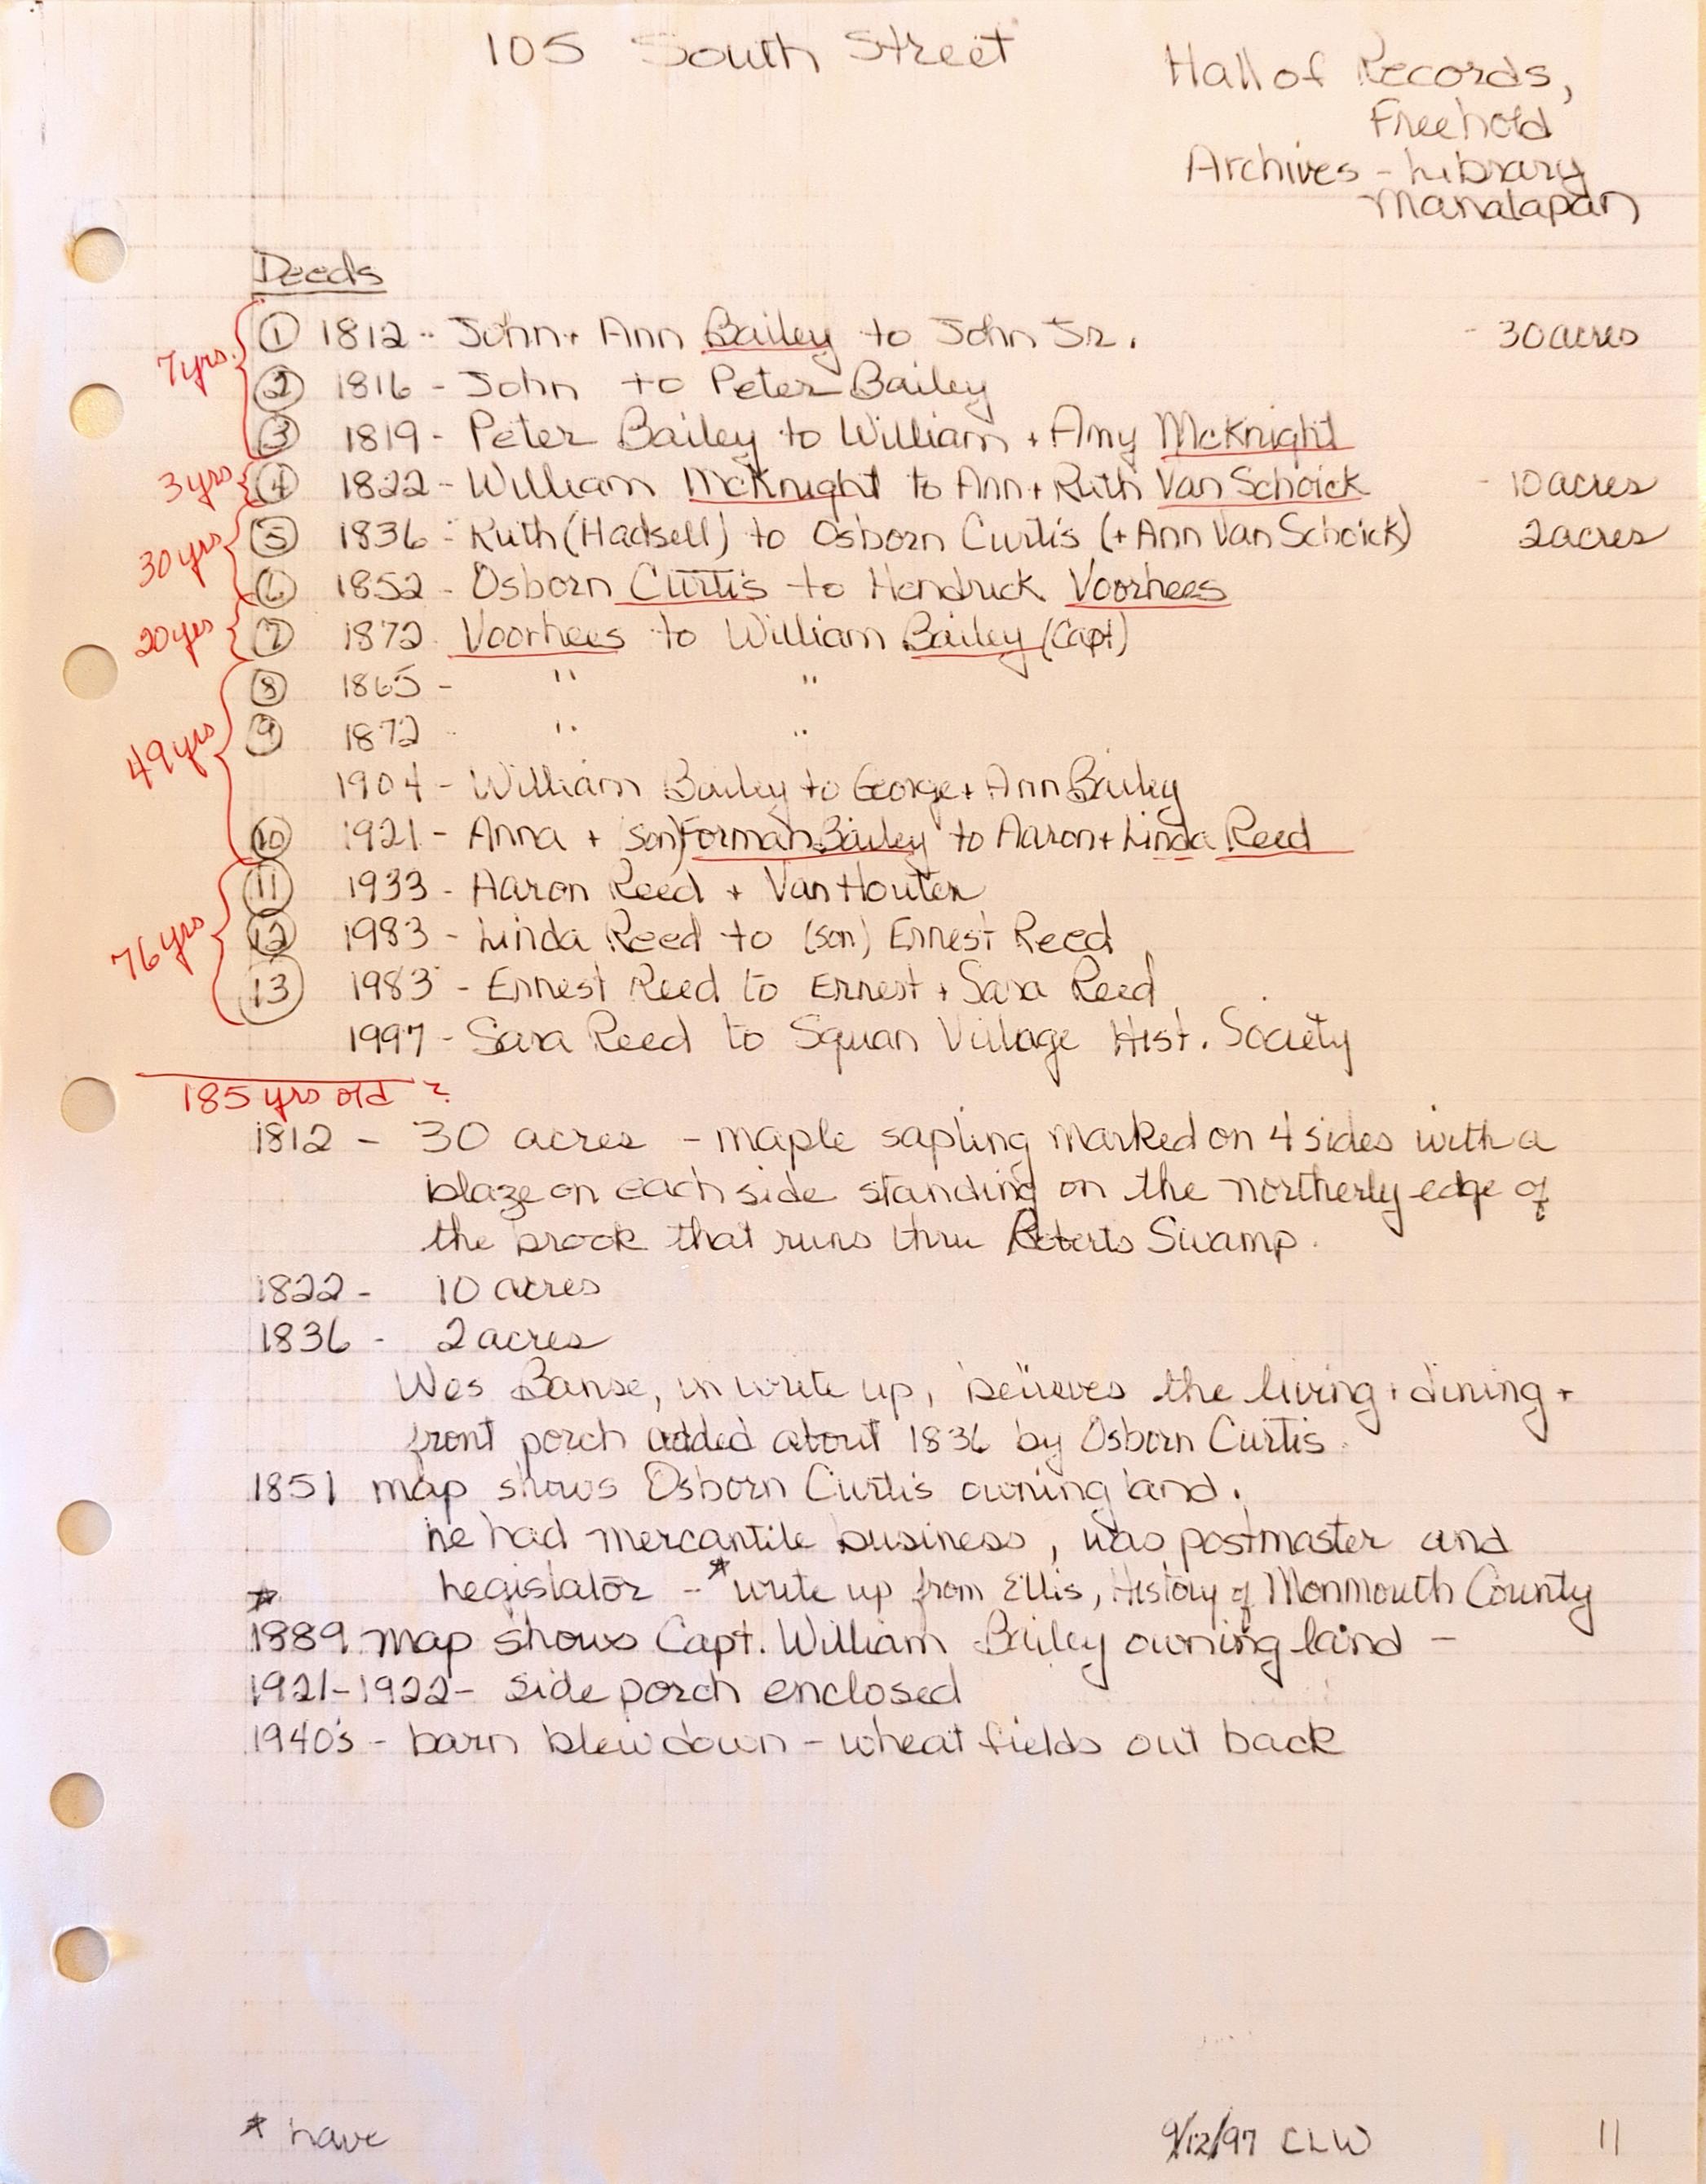 105 South Street
Hall of Records,
Freehold
Archives - Library
Manalapan
Deeds
7yrs.
① 1812 - John + Ann Bailey to John Jr. - 30 acres
② 1816 - John to Peter Bailey
③ 1819 - Peter Bailey to William + Amy McKnight
3yrs ④ 1822 - William McKnight to Ann + Ruth Van Schoick - 10 acres
30yrs ⑤ 1836 - Ruth (Hadsell) to Osborn Curtis (+ Ann Van Schoick) 2 acres
⑥ 1852 - Osborn Curtis to Hendrick Voorhees
20yrs ⑦ 1872 Voorhees to William Bailey (Capt)
⑧ 1865 - " "
49yrs ⑨ 1872 - " "
1904 - William Bailey to George + Ann Bailey
⑩ 1921 - Anna + (son) Forman Bailey to Aaron + Linda Reed
⑪ 1933 - Aaron Reed + Van Houten
76yrs ⑫ 1983 - Linda Reed to (son) Ernest Reed
⑬ 1983 - Ernest Reed to Ernest + Sara Reed
1997 - Sara Reed to Squan Village Hist. Society
185 yrs old ?
1812 - 30 acres - maple sapling marked on 4 sides with a
blaze on each side standing on the northerly edge of
the brook that runs thru Roberts Swamp.
1822 - 10 acres
1836 - 2 acres
Wes Banse, in write up, believes the living + dining +
front porch added about 1836 by Osborn Curtis.
1851 map shows Osborn Curtis owning land.
he had mercantile business, was postmaster and
* Legislator - * write up from Ellis, History of Monmouth County
1889 map shows Capt. William Bailey owning land -
1921-1922 - side porch enclosed
1940's - barn blew down - wheat fields out back
* have
9/12/97 CLW 11